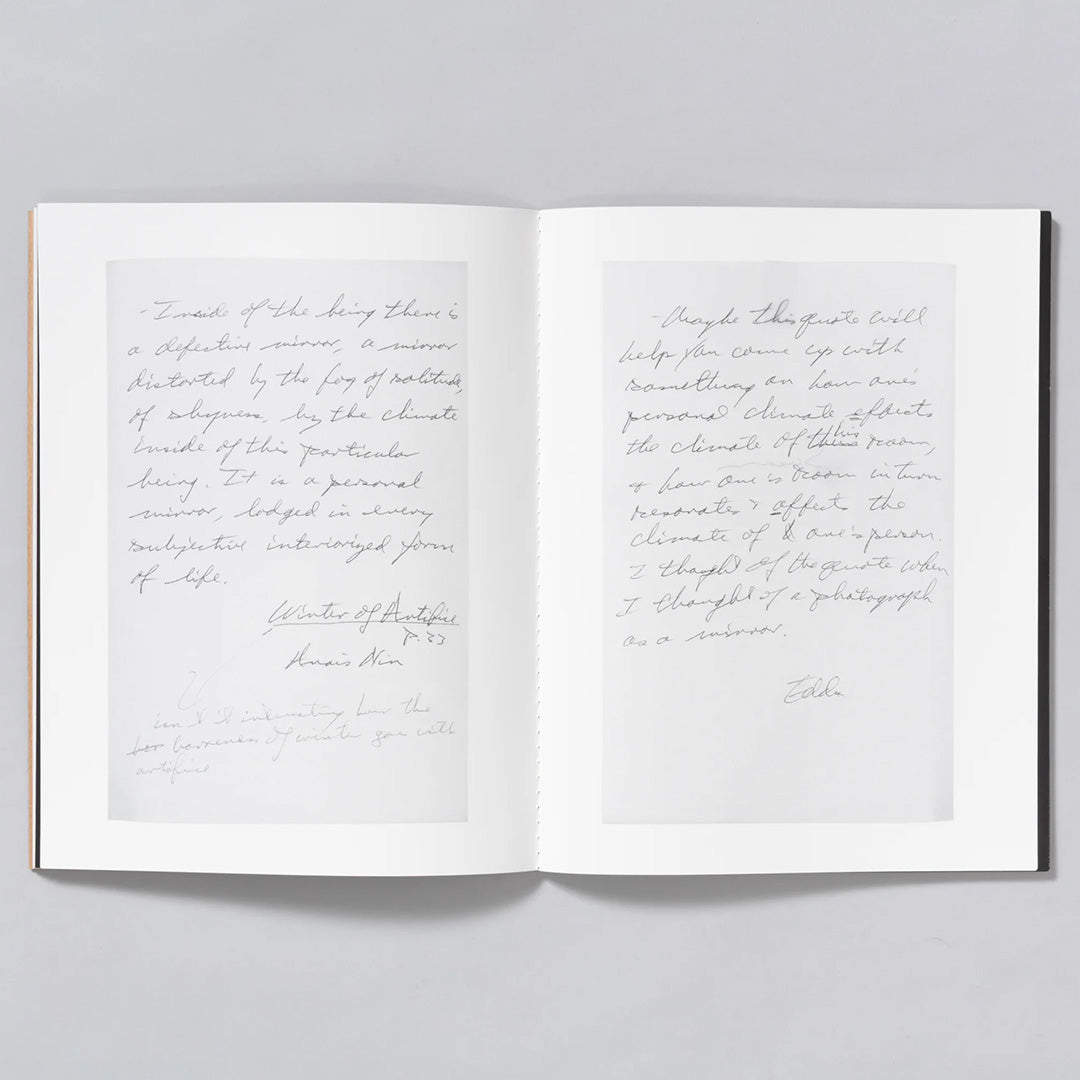 - Inside of the being there is
a defective mirror, a mirror
distorted by the fog of solitude,
of shyness, by the climate
inside of this particular
being. It is a personal
mirror, lodged in every
subjective interiorized form
of life.
Winter of Artifice
P. 33
Anais Nin
isn't it interesting how the
barreness of winter goes with
artifice
- Maybe this quote will
help you come up with
something on how one's
personal climate effects
the climate of his room,
& how one's room in turn
resonates & affects the
climate of one's person.
I thought of the quote when
I thought of a photograph
as a mirror.